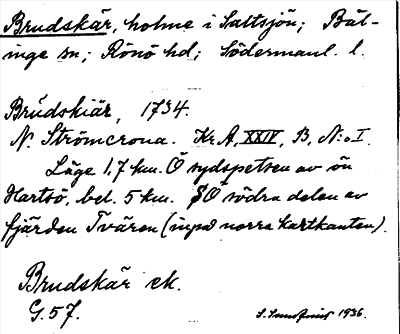 Brudskär, holme i Saltsjön; Bäl-
inge sn; Rönö hd; Södermanl. l.
Brudskiär, 1734.
N. Strömcrona. Kr.A, XXIV, B, N:o I.
Läge 1,7 km. Ö sydspetsen av ön
Hartsö, bel. 5 km. SÖ södra delen av
fjärden Tvären (inpå norra kartkanten).
Brudskär ek.
G. 57.
1936.